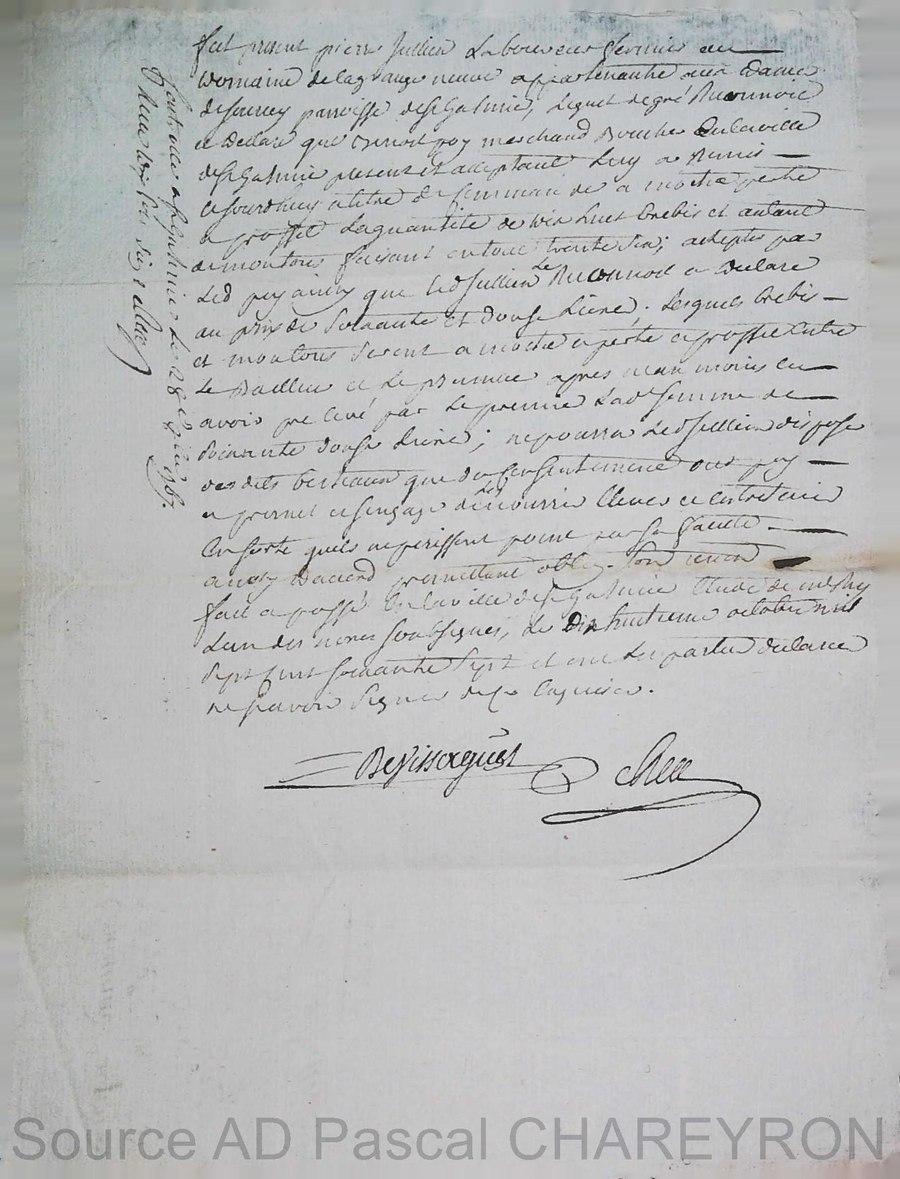 fut present pierre Jullien Laboureur fermier au
Domaine de lagrange neuve appartenante aux Dames
de Jourcey paroisse de St Galmier, Lequel de gré Reconnoit
et Declare que Benoit puy marchand Boucher de la ville
de St Galmier present et acceptant Luy a Remis
ce jourdhuy a titre de a moitié perte
et proffit Laquantité de dix huit brebis et autant
de moutons faisant en tout trente six; acheptés par
Led puy ainsy que led Jullien Le Reconnoit et Declare
au prix de soixante et douse Livres. Lesquels brebis
et moutons seront a moitié perte et proffit entre
Le Bailleur et Le preneur apres neanmoins en
avoir prelevé par Le premier Lad somme de
soixante douse Livres; ne pourra Led Jullien disposer
desdits bestiaux que du Consentement dud puy
et promet et sengage de Les nourrir Elever et Entretenir
En sorte quils ne perissent point par sa faute
ainsy Daccord promettant oblig. Son renon
fait et passé En la ville de St Galmier Etude de
Lun des nores soubsignes, Le Dix huitieme octobre mil
sept cent soixante sept et ont Les parties declaré
ne sçavoir signer de ce Enquises.
Chee
Controllé a St Galmier Le 28 1767
Reçu dix sols six d Chee
Source AD Pascal CHAREYRON